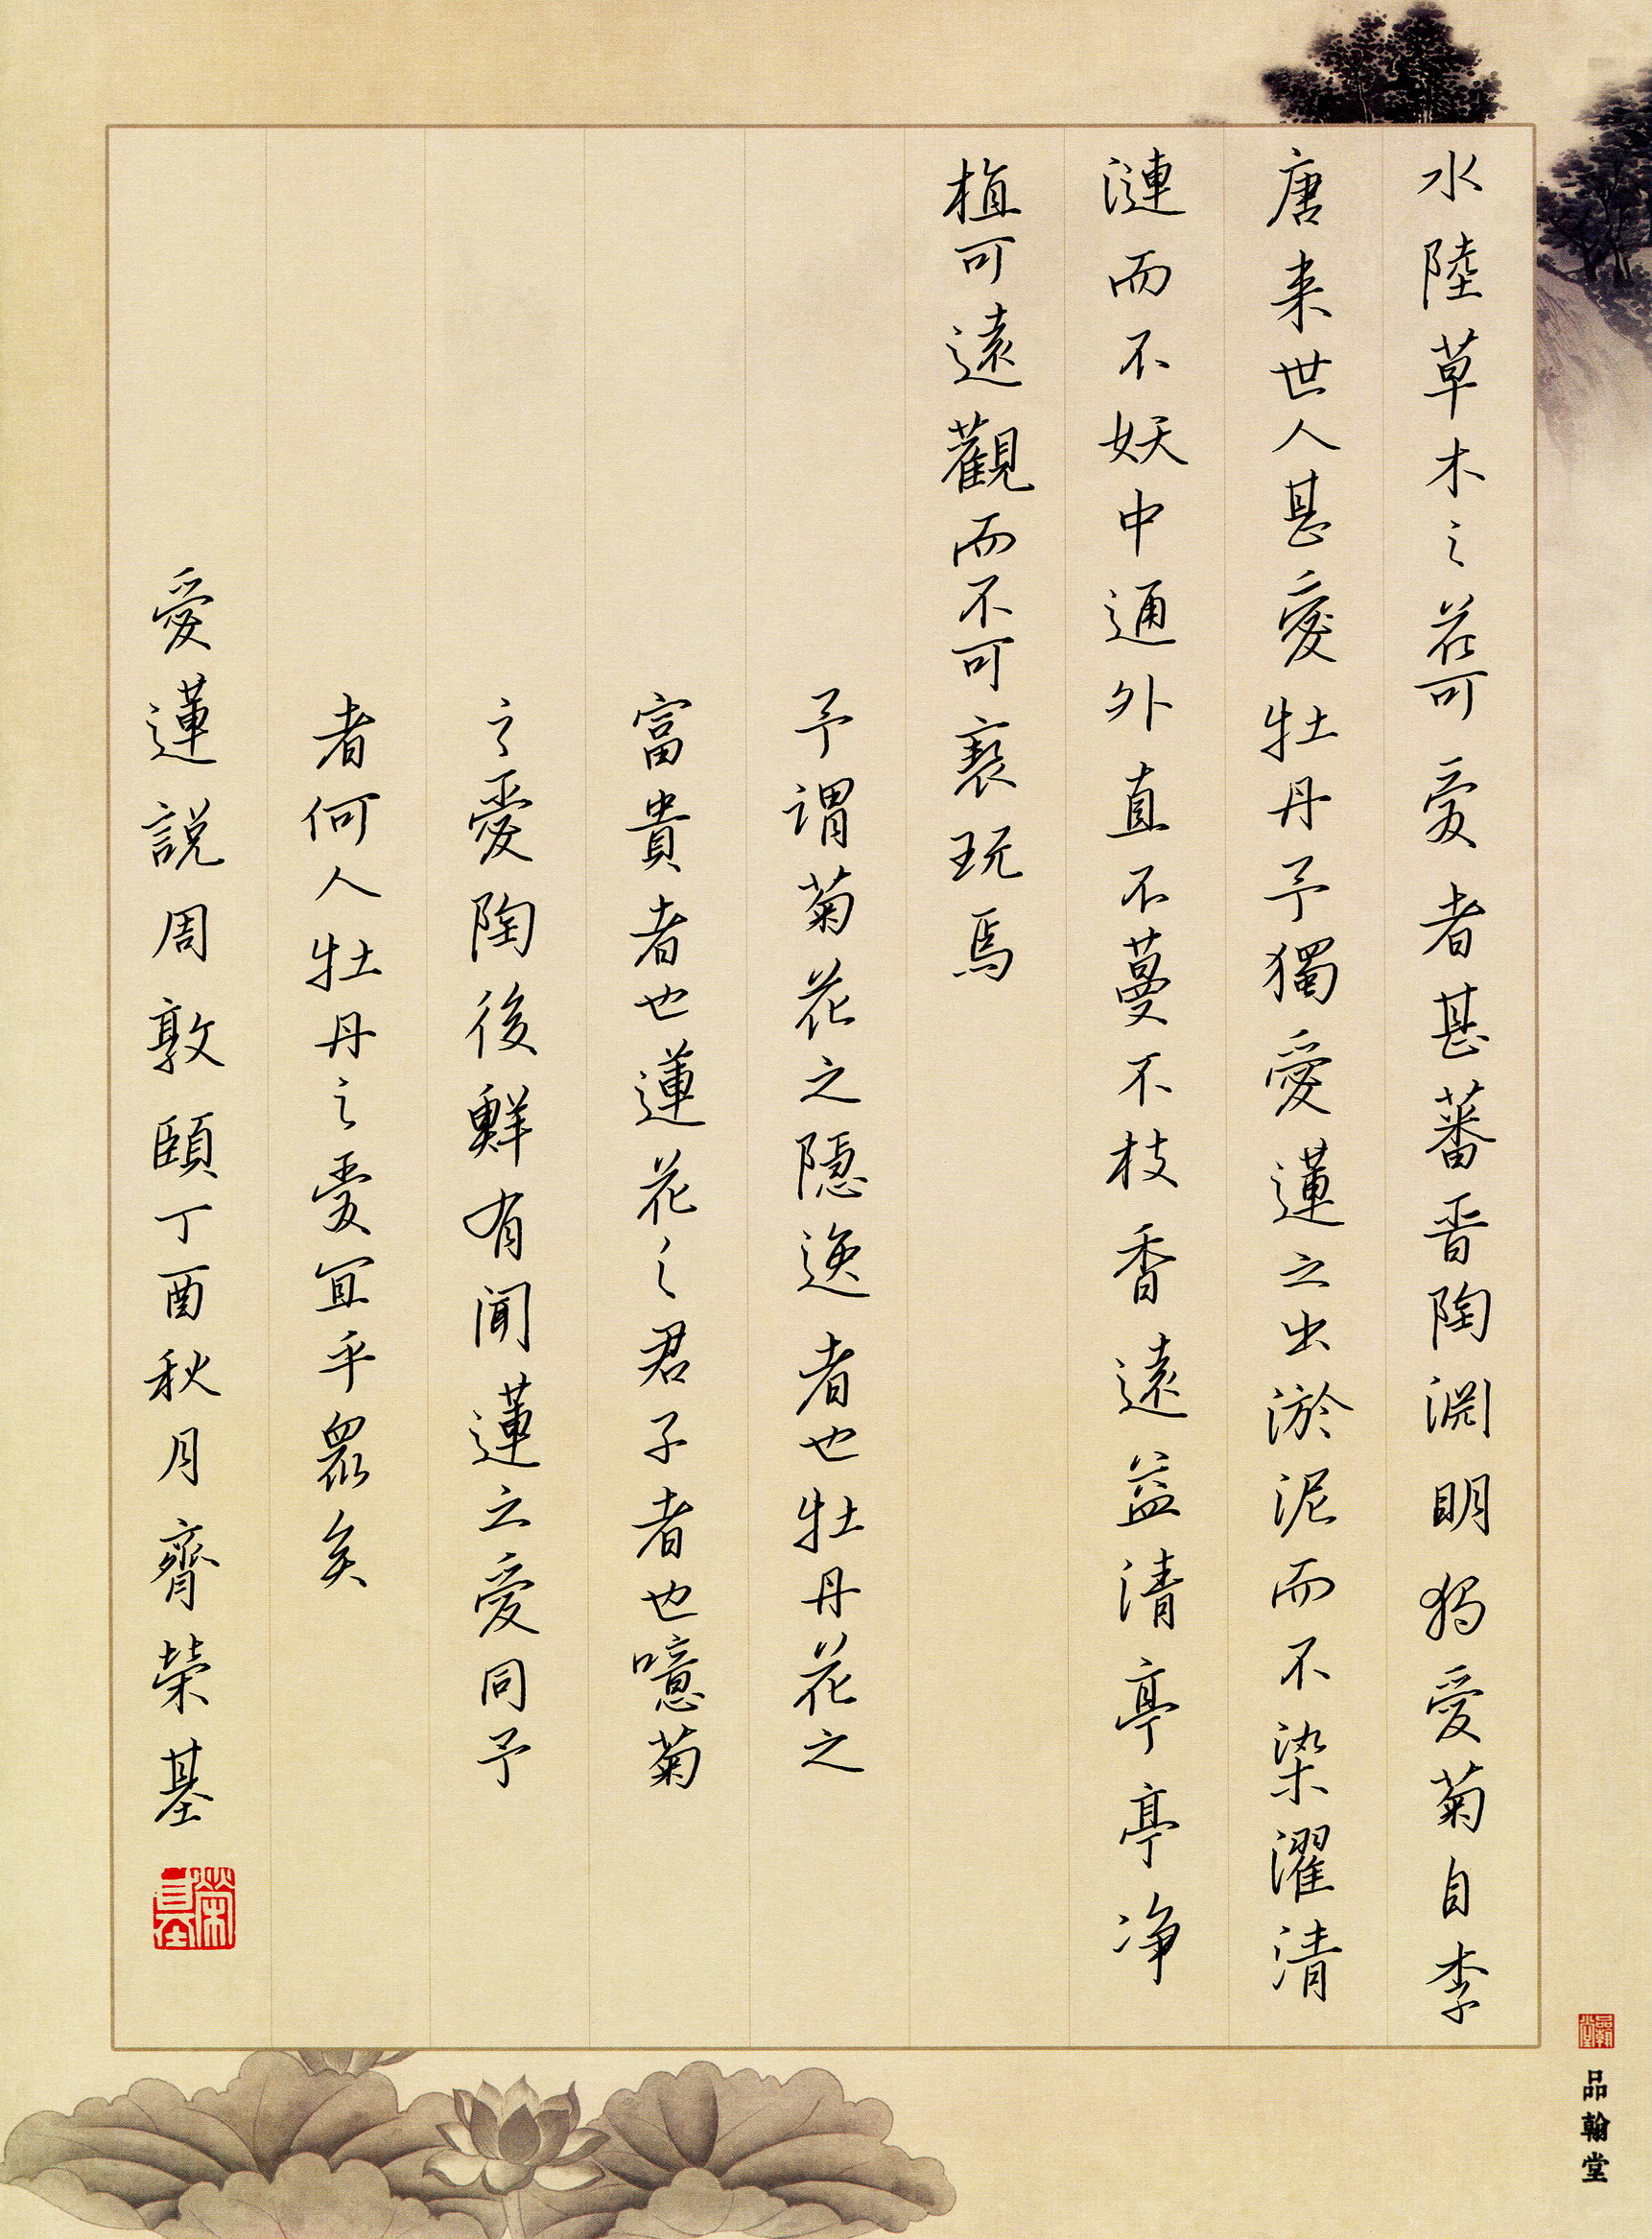 水陸草木之花可愛者甚蕃晋陶淵明獨愛菊自李
唐来世人甚愛牡丹予獨愛蓮之出淤泥而不染濯清
漣而不妖中通外直不蔓不枝香遠益清亭亭净
植可遠觀而不可褻玩焉
予謂菊花之隱逸者也牡丹花之
富貴者也蓮花之君子者也噫菊
之愛陶後鮮有聞蓮之愛同予
者何人牡丹之愛宜乎眾矣
愛蓮說周敦頤丁酉秋月齊榮基
榮基
品翰堂
品翰堂